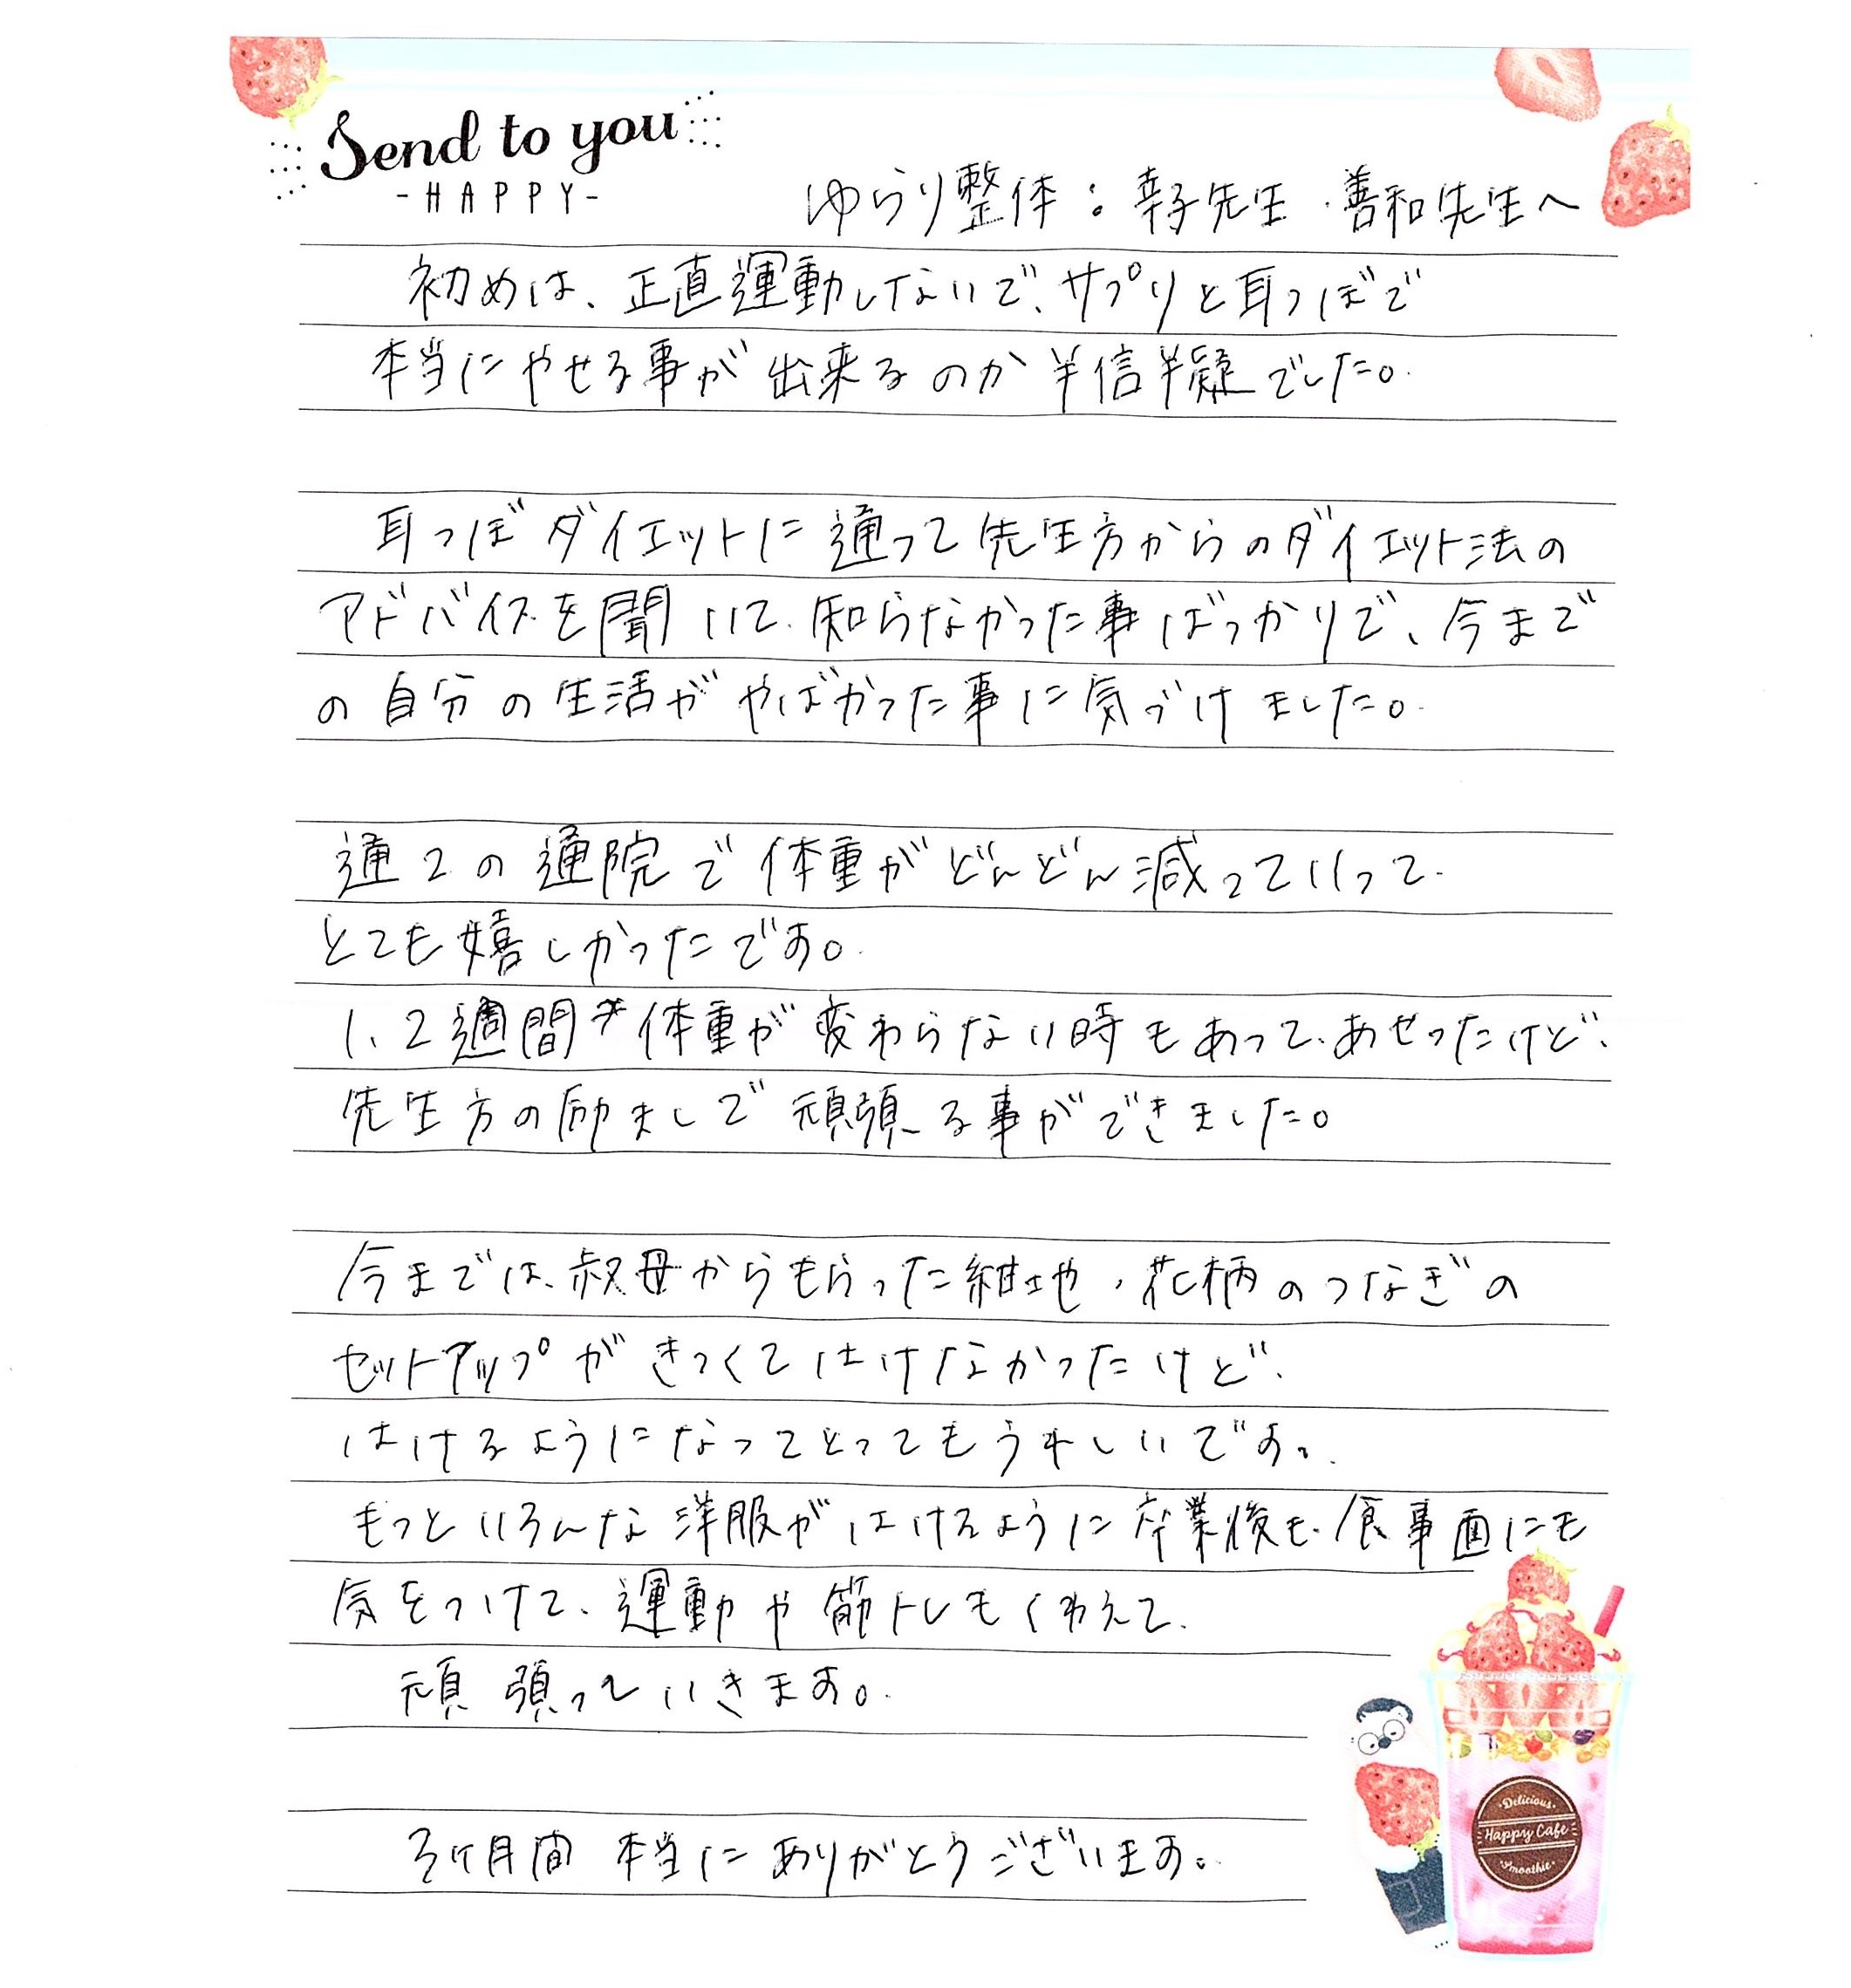 Send to you
-HAPPY-
ゆらり整体:幸子先生・善和先生へ
初めは、正直運動しないで、サプリと耳つぼで
本当にやせる事が出来るのか半信半疑でした。
耳つぼダイエットに通って先生方からのダイエット法の
アドバイスを聞いて、知らなかった事ばっかりで、今まで
の自分の生活がやばかった事に気づけました。
通2の通院で体重がどんどん減っていって、
とても嬉しかったです。
1、2週間体重が変わらない時もあって、あせったけど、
先生方の励ましで頑張る事ができました。
今までは、叔母からもらった紺地・花柄のつなぎの
セットアップがきつくてはけなかったけど、
はけるようになってとってもうれしいです。
もっといろんな洋服がはけるように卒業後も、食事面にも
気をつけて、運動や筋トレもくわえて、
頑張っていきます。
3ヶ月間 本当にありがとうございます。
Delicious
Happy Cafe
Smoothie